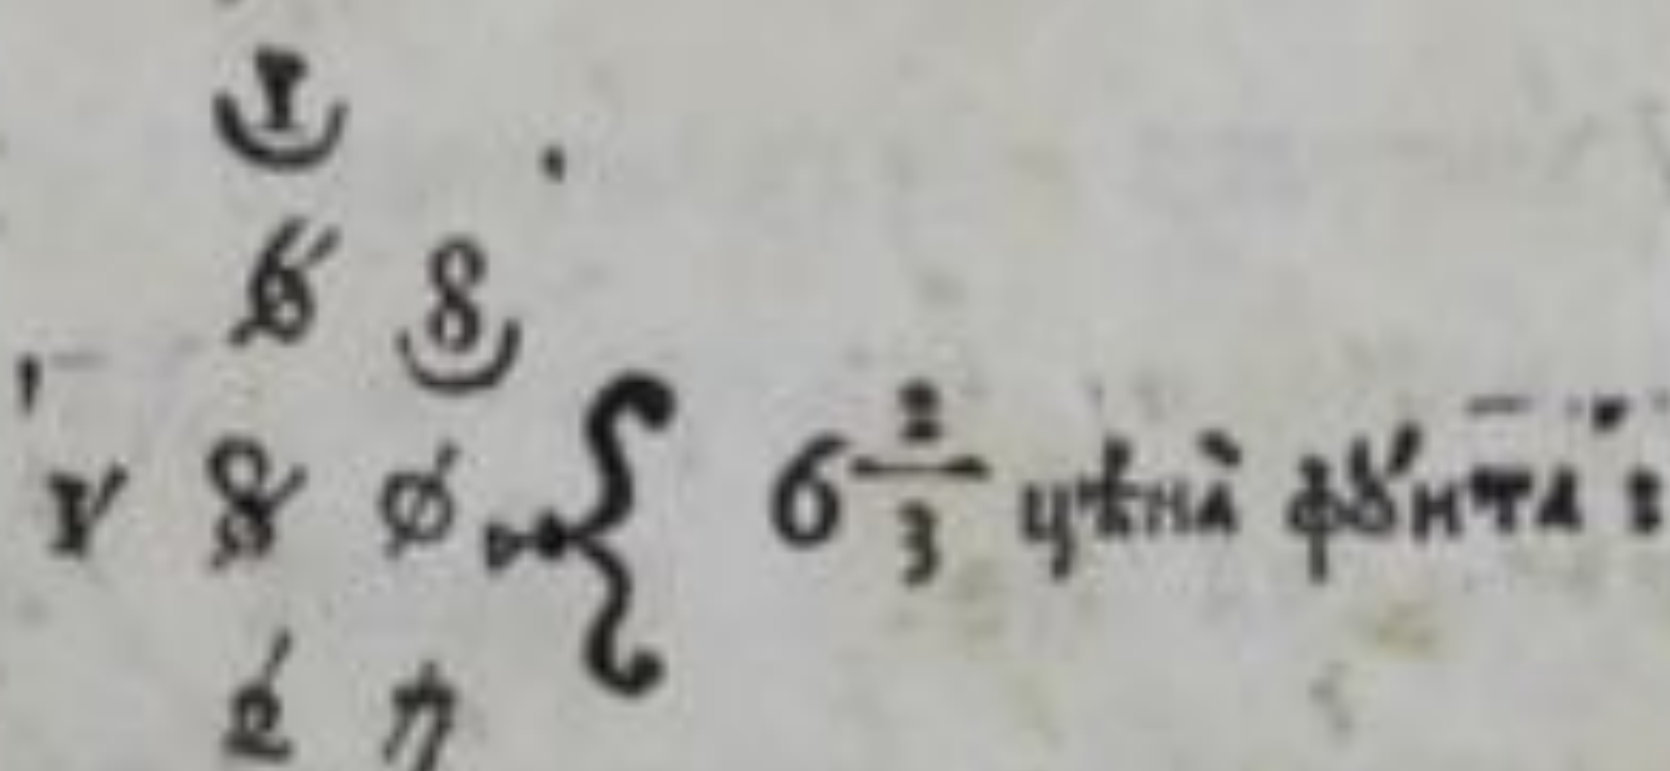 1
6 8
1 8 0 { 6 2/3 цѣна̀ фꙋ́нта :
2 7